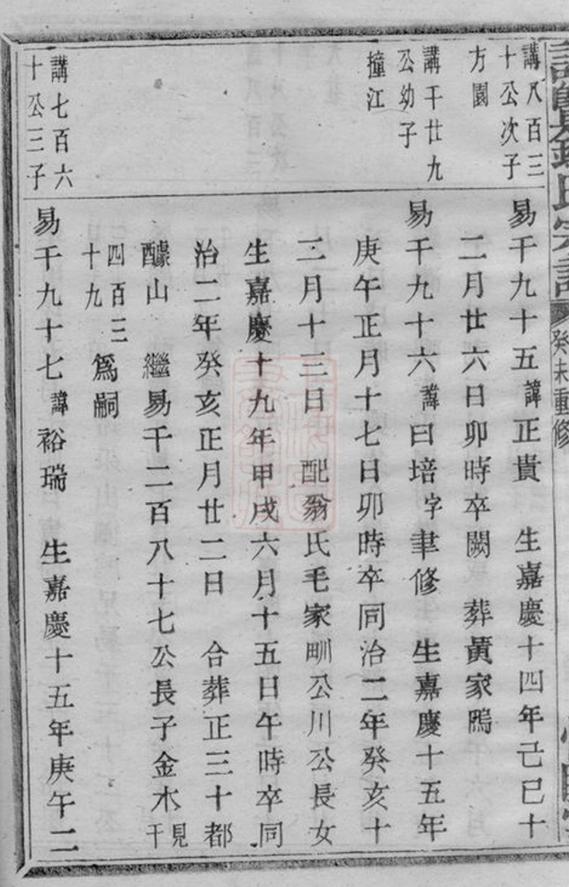 氏宗譜 癸未重修
講八百三
十公次子
方園
易千九十五諱正貴 生嘉慶十四年己巳十
二月廿六日卯時卒闕 葬黃家塢
講千廿九
公幼子
撞江
易千九十六諱曰培字聿修 生嘉慶十五年
庚午正月十七日卯時卒同治二年癸亥十
二月十三日 配翁氏毛家甽公川公長女
生嘉慶十九年甲戌六月十五日午時卒同
治二年癸亥正月廿二日 合葬正三十都
醵山 繼易千二百八十七公長子金木見千
四百三
十九 為嗣
講七百六
十公三子
易千九十七諱裕瑞 生嘉慶十五年庚午二